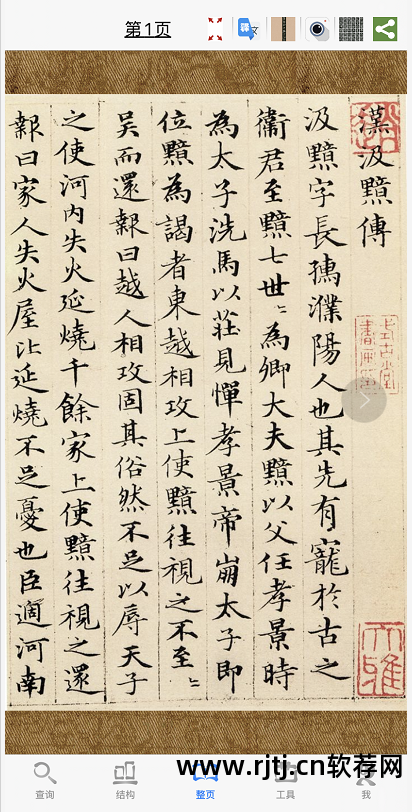 第1页
漢汲黯傳
汲黯字長孺濮陽人也其先有寵於古之
衛君至黯七世〻為卿大夫黯以父任孝景時
為太子洗馬以莊見憚孝景帝崩太子即
位黯為謁者東越相攻上使黯往視之不至〻
吴而還報曰越人相攻固其俗然不足以辱天子
之使河内失火延燒千餘家上使黯往視之還
報曰家人失火屋比延燒不足憂也臣過河南
查询
结构
整页
工具
我
www.rjtj.cn软荐网